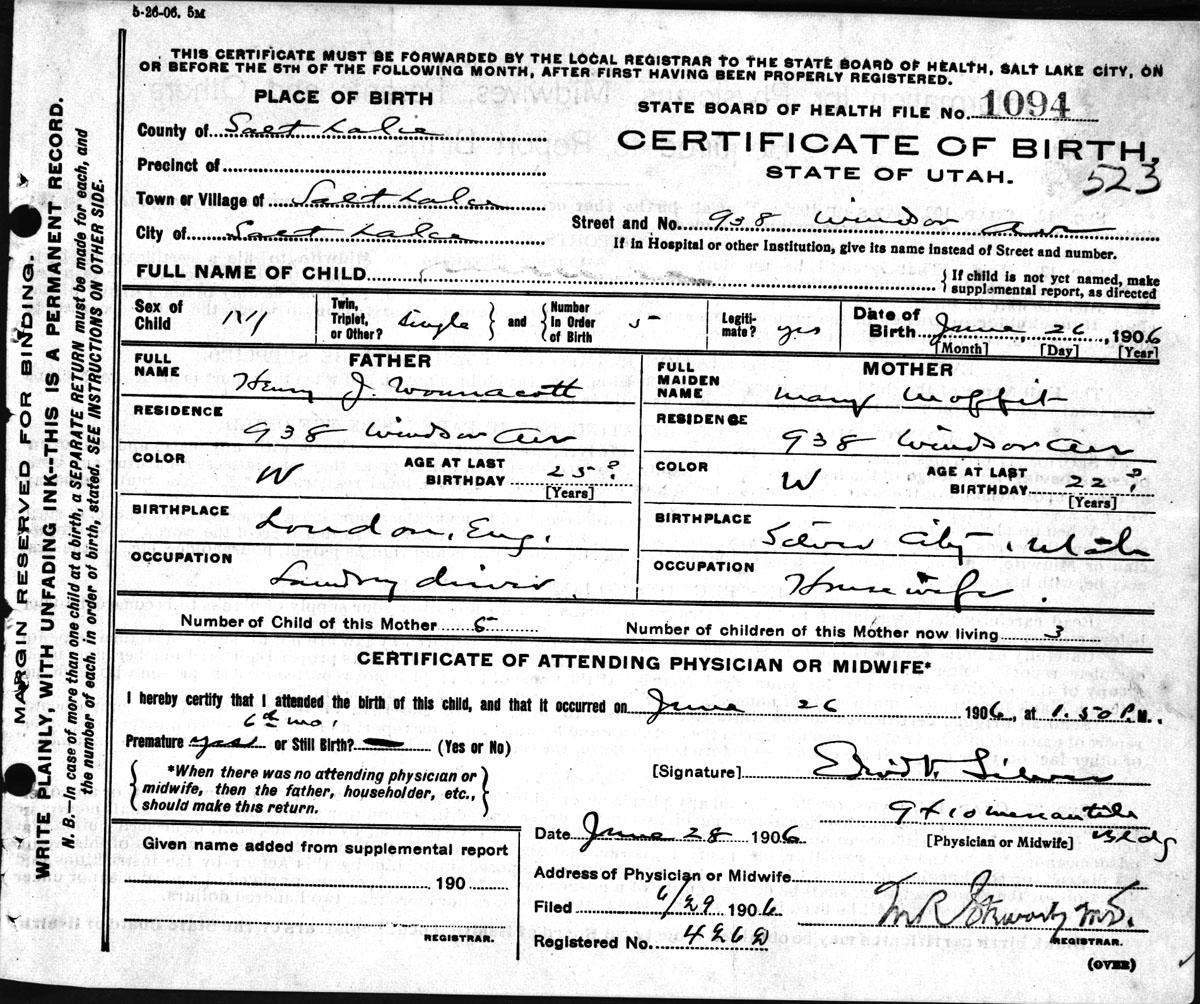 5-26-06. 5M
THIS CERTIFICATE MUST BE FORWARDED BY THE LOCAL REGISTRAR TO THE STATE BOARD OF HEALTH, SALT LAKE CITY, ON
OR BEFORE THE 5TH OF THE FOLLOWING MONTH, AFTER FIRST HAVING BEEN PROPERLY REGISTERED.
PLACE OF BIRTH
STATE BOARD OF HEALTH FILE NO. 1094
County of Salt Lake
CERTIFICATE OF BIRTH,
Precinct of
STATE OF UTAH.
523
Town or Village of Salt Lake
Street and No. 938 Windsor Ave
City of Salt Lake
If in Hospital or other Institution, give its name instead of Street and number.
FULL NAME OF CHILD
If child is not yet named, make
supplemental report, as directed
Sex of Child M
Twin, Triplet, or Other? Single and Number In Order of Birth 5
Legiti-mate? yes
Date of Birth June 26, 1906
[Month] [Day] [Year]
FATHER
FULL NAME Henry J. Wonnacott
RESIDENCE
938 Windsor Ave
COLOR W AGE AT LAST BIRTHDAY 25?
[Years]
BIRTHPLACE London, Eng.
OCCUPATION Laundry driver
MOTHER
FULL MAIDEN NAME Mary Moffit
RESIDENCE
938 Windsor Ave
COLOR W AGE AT LAST BIRTHDAY 22?
[Years]
BIRTHPLACE Silver City, Utah
OCCUPATION Housewife.
Number of Child of this Mother 5
Number of children of this Mother now living 3
CERTIFICATE OF ATTENDING PHYSICIAN OR MIDWIFE*
I hereby certify that I attended the birth of this child, and that it occurred on June 26 1906, at 1.50 P.M.
6th mo.
Premature yes or Still Birth? (Yes or No)
*When there was no attending physician or
midwife, then the father, householder, etc.,
should make this return.
[Signature]
9 & 10 Mercantile
Bldg
[Physician or Midwife]
Date June 28 1906
Given name added from supplemental report
190
REGISTRAR.
Address of Physician or Midwife
Filed 6/29 1906
M.D.
REGISTRAR.
Registered No.
(OVER)
MARGIN RESERVED FOR BINDING.
WRITE PLAINLY, WITH UNFADING INK--THIS IS A PERMANENT RECORD.
N. B.--In case of more than one child at a birth, a SEPARATE RETURN must be made for each, and
the number of each, in order of birth, stated. SEE INSTRUCTIONS ON OTHER SIDE.